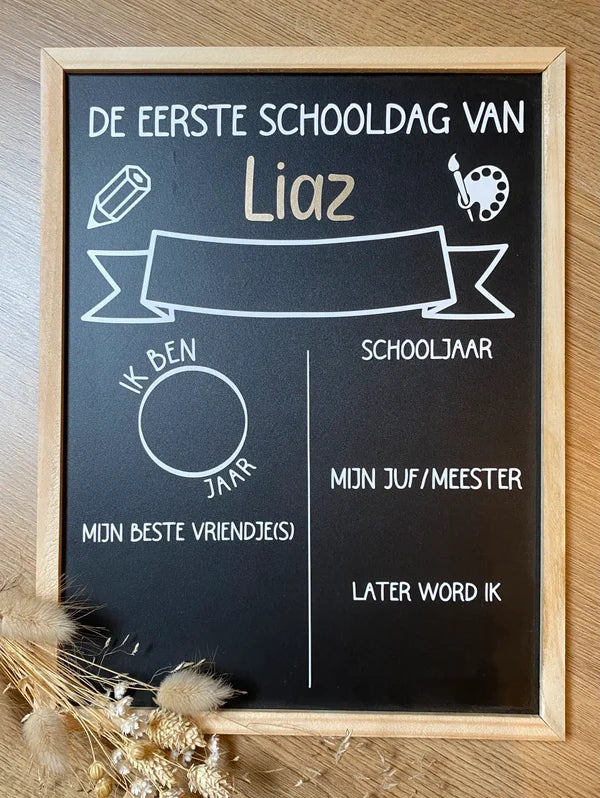 DE EERSTE SCHOOLDAG VAN
Liaz
IK BEN
JAAR
MIJN BESTE VRIENDJE(S)
SCHOOLJAAR
MIJN JUF/MEESTER
LATER WORD IK